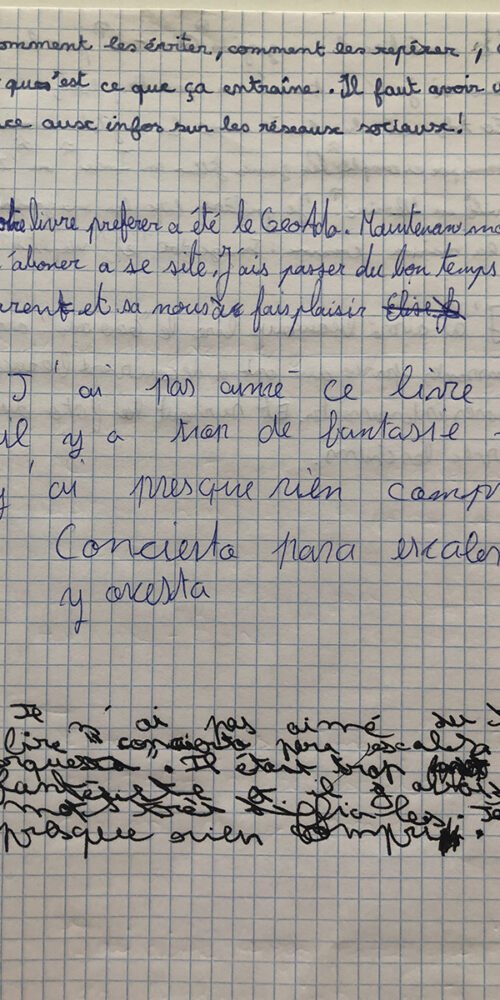 omment les éviter, comment les repérer,
qu'est ce que ça entraîne. Il faut avoir
ce aux infos sur les réseaux sociaux!
otre livre preferer a été le GeoAdo. Maintenan
aboner a se site. J'ais passer du bon temps
arent et sa nous a fais plaisir
J'ai pas aimé ce livre
il y a trop de fantasie
j'ai presque rien comp
Concierto para escaler
y orcesta
Je n'ai pas aimé du
lire concierto para escalera
orquesta. Il était trop
fantésiste et il y avais
mots
presque rien compri.